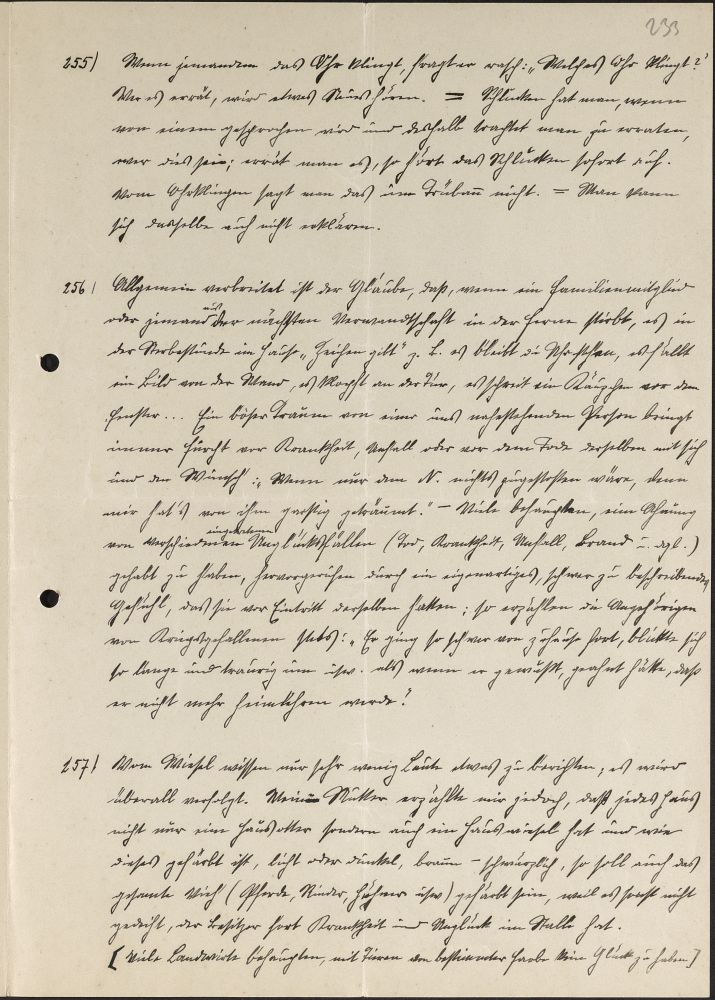 233
255) Wenn jemandem das Ohr klingt, fragt er rasch: „Welches Ohr klingt?"
Wer es errät, wird etwas Neues hören. = Schlucken hat man, wenn
von einem gesprochen wird und deshalb trachtet man zu erraten,
wer dies sei; errät man es, so hört das Schlucken sofort auf.
Vom Ohrklingen sagt man das um Trübau nicht. = Man kann
sich dasselbe auch nicht erklären.
256) Allgemein verbreitet ist der Glaube, daß, wenn ein Familienmitglied
oder jemand aus der nächsten Verwandtschaft in der Ferne stirbt, es in
der Sterbestunde im Hause „Zeichen gibt" z. B. es bleibt die Uhr stehen, es fällt
ein Bild von der Wand, es klopft an der Tür, es schreit ein Käuzchen vor dem
Fenster... Ein böser Traum von einer uns nahestehenden Person bringt
immer Furcht vor Krankheit, Unfall oder vor dem Tode derselben mit sich
und den Wunsch: „Wenn nur dem N. nichts zugestoßen wäre, denn
mir hat's von ihm garstig geträumt." – Viele behaupten, eine Ahnung
von verschiedenen eingetretenen Unglücksfällen (Tod, Krankheit, Unfall, Brand u. dgl.)
gehabt zu haben, hervorgerufen durch ein eigenartiges, schwer zu beschreibendes
Gefühl, das sie vor Eintritt derselben hatten; so erzählen die Angehörigen
von Kriegsgefallenen stets: „Er ging so schwer von zuhause fort, blickte sich
so lange und traurig um usw. als wenn er gewußt, geahnt hätte, daß
er nicht mehr heimkehren werde."
257) Vom Wiesel wissen nur sehr wenig Leute etwas zu berichten; es wird
überall verfolgt. Meine Mutter erzählte mir jedoch, daß jedes Haus
nicht nur eine Hausotter sondern auch ein Hauswiesel hat und wie
dieses gefärbt ist, licht oder dunkel, braun – schwärzlich, so soll auch das
gesamte Vieh (Pferde, Rinder, Hühner usw) gefärbt sein, weil es sonst nicht
gedeiht, der Besitzer fort Krankheit und Unglück im Stalle hat.
[Viele Landwirte behaupten, mit Tieren von bestimmter Farbe kein Glück zu haben]